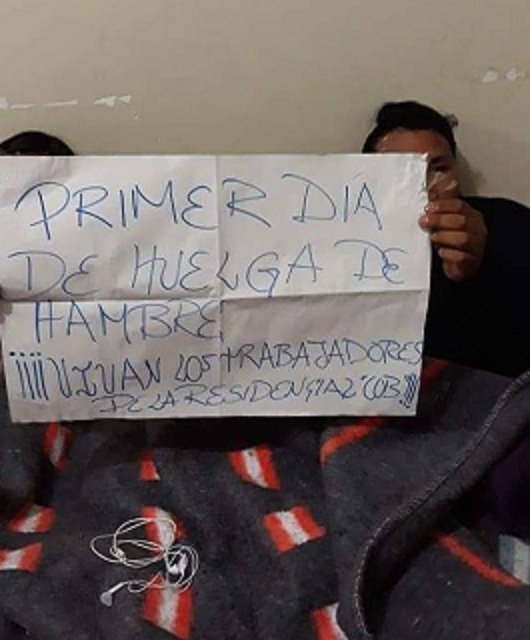 PRIMER DÍA
DE HUELGA DE
HAMBRE
¡¡¡¡VIVAN LOS TRABAJADORES
DE LA RESIDENCIAL COB!!!